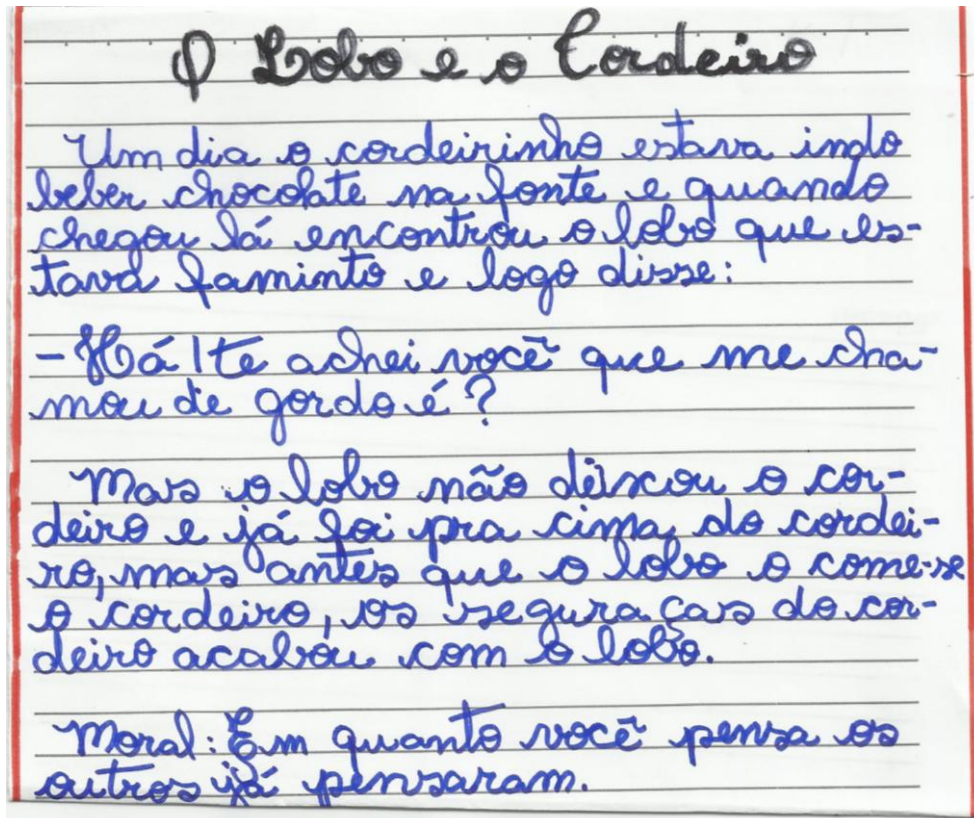 O Lobo e o Cordeiro
Um dia o cordeirinho estava indo
beber chocolate na fonte e quando
chegou lá encontrou o lobo que es-
tava faminto e logo disse:
- Há! te achei você que me cha-
mou de gordo é?
Mas o lobo não deixou o cor-
deiro e já foi pra cima do cordei-
ro, mas antes que o lobo o come-se
o cordeiro, os seguraças do cor-
deiro acabou com o lobo.
Moral: Em quanto você pensa os
outros já pensaram.